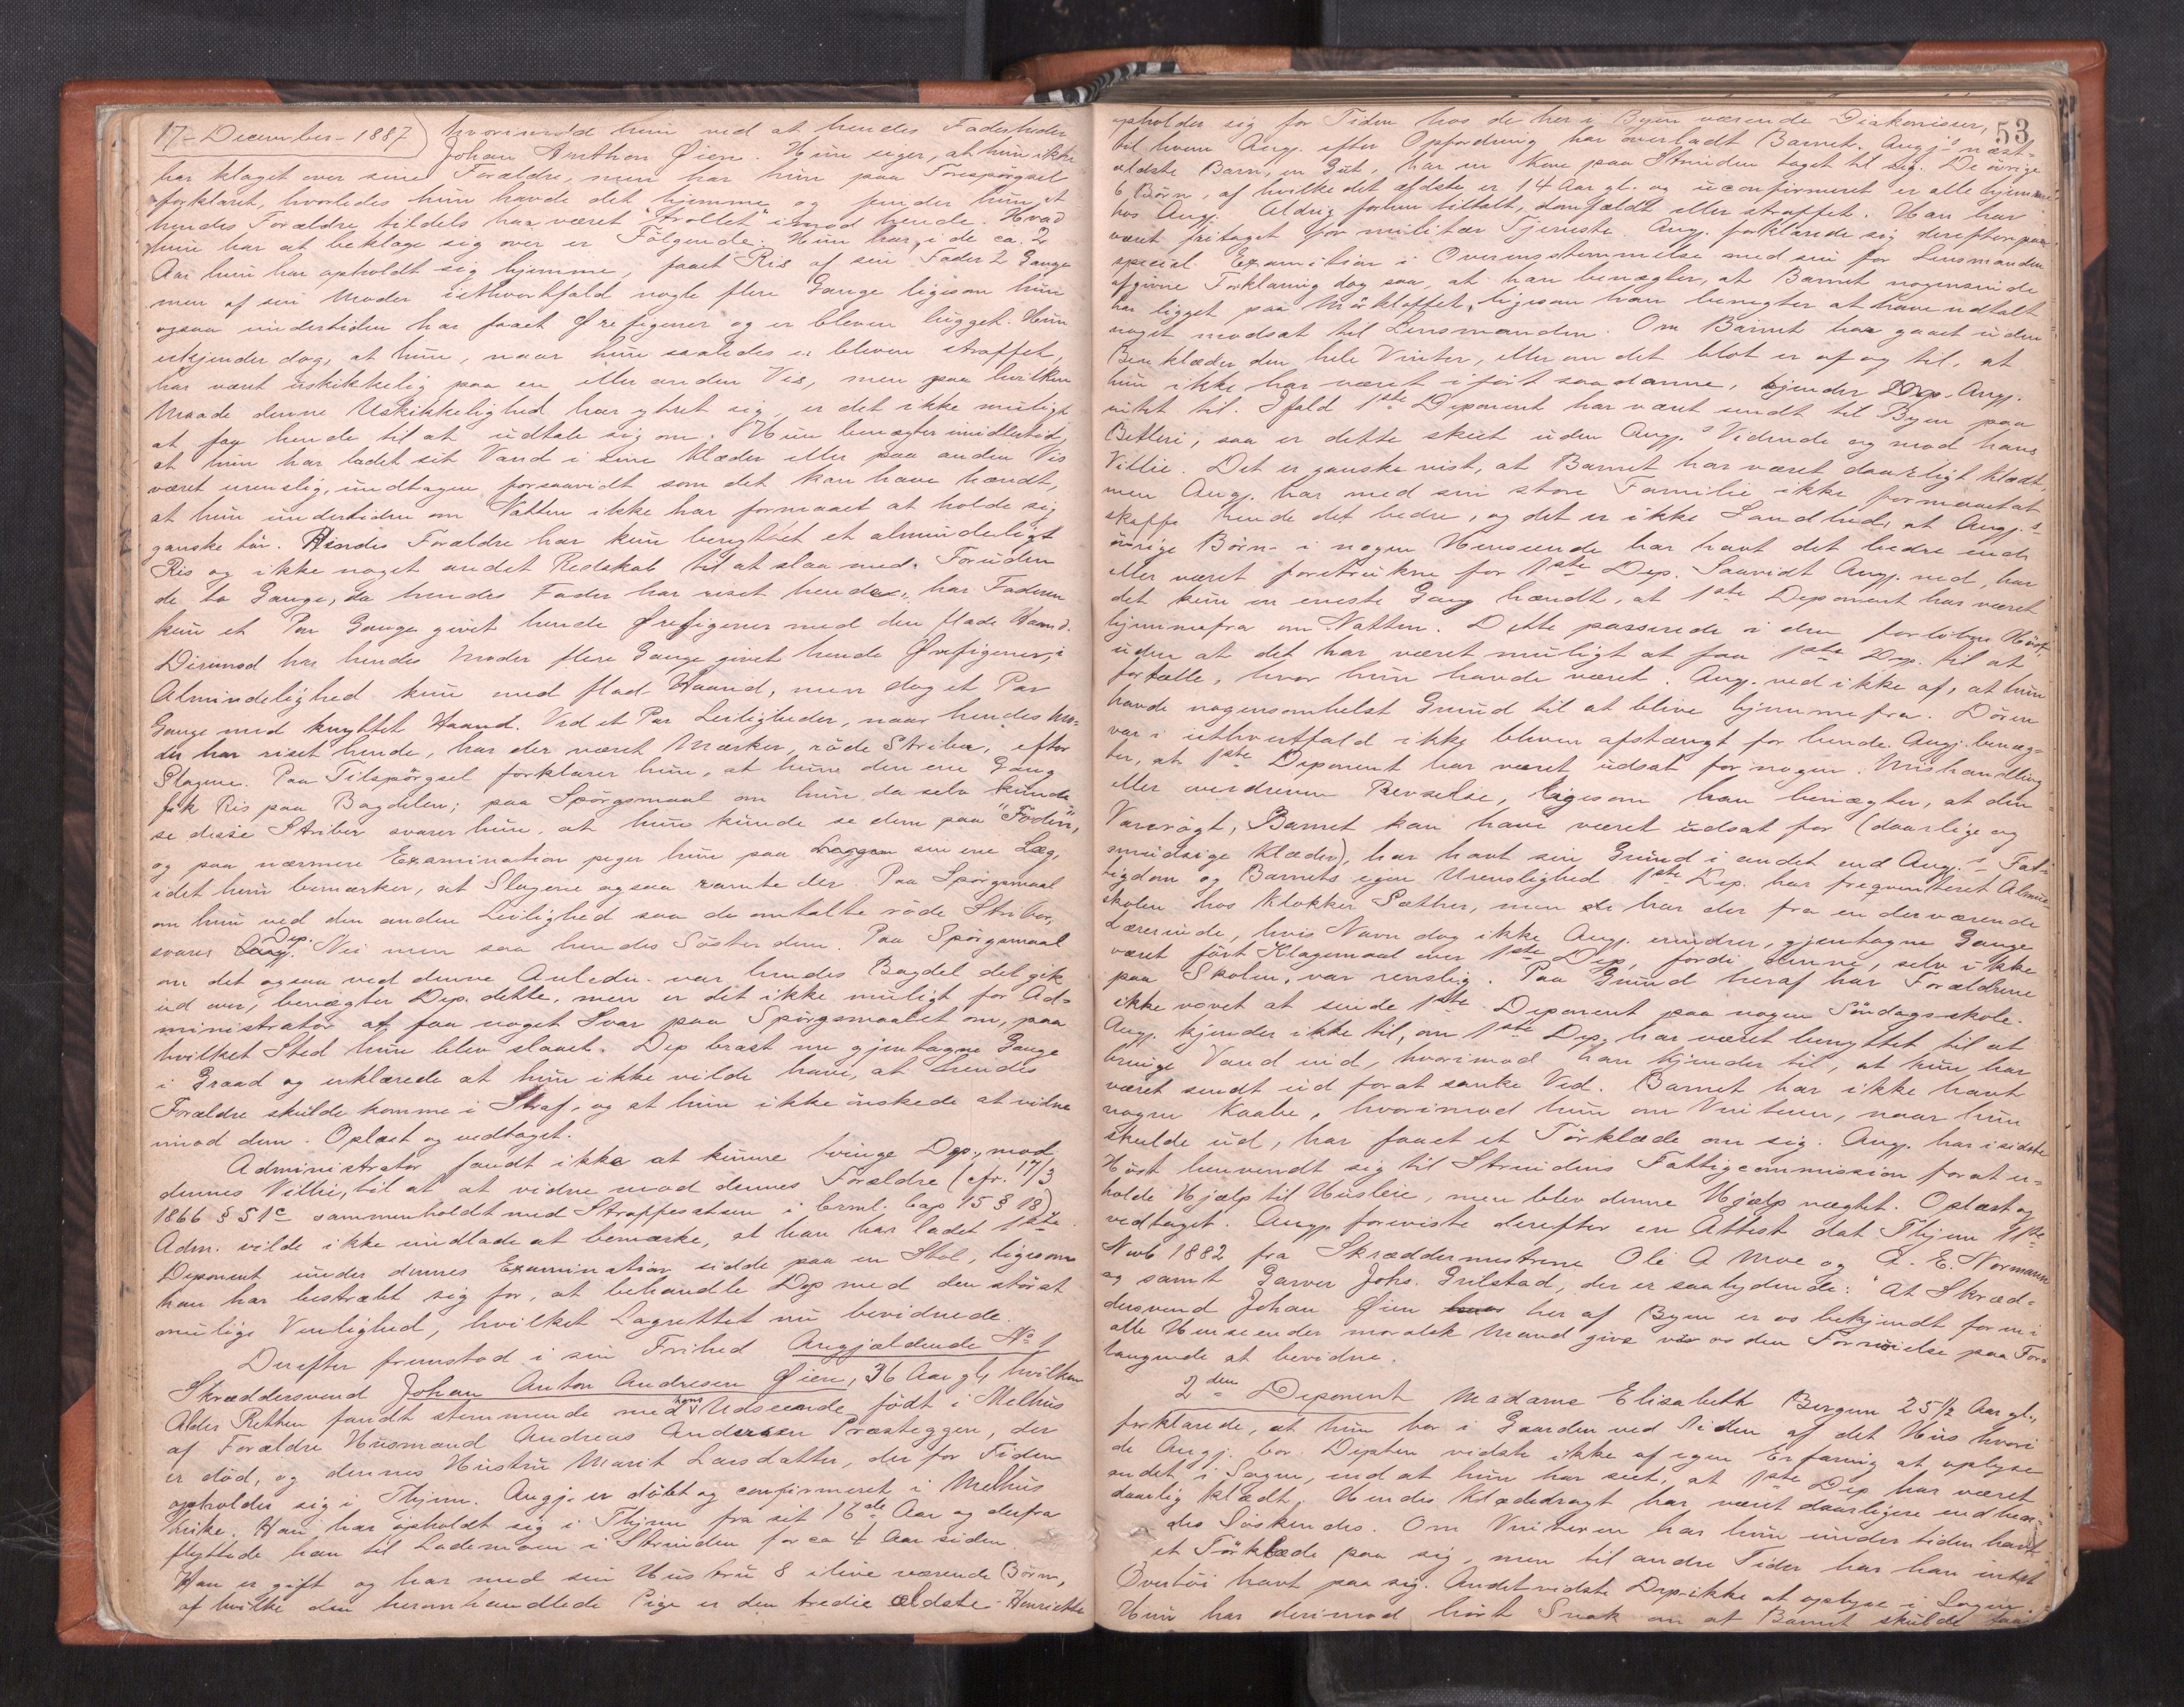 17 - December - 1887) hvorimod hun ved at hendes Faderheder
Johan Anthon Øien. Hun siger, at hun ikke
har klaget over sine Forældre, men har hun paa Forespørgsel
forklaret, hvorledes hun havde det hjemme og finder hun, at
hendes Forældre tildels har været "trollet" imod hende. Hvad
hun har at beklage sig over er Følgende. Hun har, i de ca. 2
Aar hun har opholdt sig hjemme, faaet Ris af sin Fader 2 Gange
men af sin Moder i ethvertfald nogle flere Gange ligesom hun
ogsaa undertiden har faaet Ørefigener og er bleven lugget. Hun
erkjender dog, at hun, naar hun saaledes er bleven straffet,
har været uskikkelig paa en eller anden Vis, men paa hvilken
Maade denne Uskikkelighed har ytret sig, er det ikke muligt
at faa hende til at udtale sig om. Hun benægter imidlertid,
at hun har ladet sit Vand i sine Klæder eller paa anden Vis
været urenslig, undtagen forsaavidt som det kan have hændt,
at hun undertiden om Natten ikke har formaaet at holde sig
ganske tør. Hendes Forældre har kun benyttet et almindeligt
Ris og ikke noget andet Redskab til at slaa med. Foruden
de to Gange, da hendes Fader har riset hende, har Faderen
kun et Par Gange givet hende Ørefigener med den flade Haand.
Derimod har hendes Moder flere Gange givet hende Ørefigener, i
Almindelighed kun med flad Haand, men dog et Par
Gange med knyttet Haand. Ved et Par Leiligheder, naar hendes Mo-
der har riset hende, har der været Mærker, røde Striber, efter
Slagene. Paa Tilspørgsel forklarer hun, at hun den ene Gang
fik Ris paa Bagdelen; paa Spørgsmaal om hun da selv kunde
se disse Striber svarer hun, at hun kunde se dem paa "Foden",
og paa nærmere Examination peger hun paa Læggen sin ene Læg,
idet hun bemærker, at Slagene ogsaa ramte der. Paa Spørgsmaal
om hun ved den anden Leilighed saa de omtalte røde Striber,
svarer Dep. Nei men saa hendes Søster dem. Paa Spørgsmaal
om det ogsaa ved denne Anledn. var hendes Bagdel det gik
ud over, benægter Dep. dette, men er det ikke muligt for Ad-
ministrator at faa noget Svar paa Spørgsmaalet om, paa
hvilket Sted hun blev slaaet. Dep brast nu gjentagne Gange
i Graad og erklærede at hun ikke vilde have, at hendes
Forældre skulde komme i Straf, og at hun ikke ønskede at vidne
imod dem. Oplæst og vedtaget.
Administrator fandt ikke at kunne tvinge Dep., mod
dennes Villie, til at at vidne mod dennes Forældre (cfr. 17/3
1866 § 51c sammenholdt med Straffesatsen i Crml. Cap 15 § 18).
Adm. vilde ikke undlade at bemærke, at han har ladet 1ste
Deponent under dennes Examination sidde paa en Stol, ligesom
han har bestræbt sig for, at behandle Dep med den størst
mulige Venlighed, hvilket Lagrettet nu bevidnede.
Derefter fremstod i sin Frihed Angjældende No 1
Skræddersvend Johan Anton Andresen Øien, 36 Aar gl, hvilken
Alder Retten fandt stemmende med hans Udseende, født i Melhus
af Forældre Husmand Andreas Andersen Præsteggen, der
er død, og dennes Hustru Marit Larsdatter, der for Tiden
opholder sig i Thjem. Angj. er døbt og confirmeret i Melhus
Kirke. Han har opholdt sig i Thjem fra sit 16de Aar og derfra
flyttede han til Lademoen i Strinden for ca 4 Aar siden.
Han er gift og har med sin Hustru 8 ilive værende Børn,
af hvilke den heromhandlede Pige er den tredie ældste. Henriette
53
opholder sig for Tiden hos de her i Byen værende Diakonisser,
til hvem Angj. efter Opfordring har overladt Barnet. Angj's næst-
ældste Barn, en Gut, har en Kone paa Strinden taget til sig. De øvrige
6 Børn, af hvilke det ældste er 14 Aar gl. og uconfirmeret er alle hjemme
hos Angj. Aldrig forhen tiltalt, domfældt eller straffet. Han har
været fritaget for militær Tjeneste. Angj. forklarede sig derefter paa
special Examination i Overensstemmelse med sin for Lensmanden
afgivne Forklaring dog saa, at han benægter, at Barnet nogensinde
har ligget paa Mørkloftet, ligesom han benægter at have udtalt
noget modsat til Lensmanden. Om Barnet har gaaet uden
Benklæder den hele Vinter, eller om det blot er af og til, at
hun ikke har været iført saadanne, kjender Dep. Angj.
intet til. Ifald 1ste Deponent har været sendt til Byen paa
Betleri, saa er dette skeet uden Angj.s Vidende og mod hans
Villie. Det er ganske vist, at Barnet har været daarligt klædt,
men Angj. har med sin store Familie ikke formaaet at
skaffe hende det bedre, og det er ikke Sandhed, at Angj.s
øvrige Børn i nogen Henseende har havt det bedre end
eller været foretrukne for 1ste Dep. Saavidt Angj. ved, har
det kun en eneste Gang hændt, at 1ste Deponent har været
hjemmefra om Natten. Dette passerede i den forløbne Høst,
uden at det har været muligt at faa 1ste Dep. til at
fortælle, hvor hun havde været. Angj. ved ikke af, at hun
havde nogensomhelst Grund til at blive hjemmefra. Døren
var i ethvertfald ikke bleven afstængt for hende. Angj. benæg-
ter, at 1ste Deponent har været udsat for nogen Mishandling
eller overdreven Revselse, ligesom han benægter, at den
Vanrøgt, Barnet kan have været udsat for (daarlige og
smudsige Klæder), har havt sin Grund i andet end Angj.s Fat-
tigdom og Barnets egen Urenslighed. 1ste Dep. har frequenteret Almue-
skolen hos Klokker Sæther, men de har der fra en derværende
Lærerinde, hvis Navn dog ikke Angj. erindrer, gjentagne Gange
været ført Klagemaal over 1ste Dep, fordi denne, selv ikke
paa Skolen, var renslig. Paa Grund heraf har Forældrene
ikke vovet at sende 1ste Deponent paa nogen Søndagsskole.
Angj. kjender ikke til, om 1ste Dep. har været benyttet til at
bringe Vand ind, hvorimod han kjender til, at hun har
været sendt ud for at sanke Ved. Barnet har ikke havt
nogen Kaabe, hvorimod hun om Vinteren, naar hun
skulde ud, har faaet et Tørklæde om sig. Angj. har i sidste
Høst henvendt sig til Strindens Fattigcommission for at er-
holde Hjælp til Husleie, men blev denne Hjælp nægtet. Oplæst og
vedtaget. Angj. foreviste derefter en Attest dat Thjem 11te
Novb 1882 fra Skræddermestrene Ole A Moe og A. E. Normann
og samt Garver Johs. Grilstad, der er saalydende: "At Skræd-
dersvend Johan Øien her af Byen er os bekjendt for en i
alle Henseender moralsk Mand give vi os den Fornøielse paa For-
langende at bevidne.
2den Deponent Madame Elisabeth Bergum 25 1/2 Aar gl.,
forklarede, at hun bor i Gaarden ved Siden af det Hus hvori
de Angj. bor. Depten vidste ikke af egen Erfaring at oplyse
andet i Sagen, end at hun har seet, at 1ste Dep har været
daarlig klædt. Hendes Klædedragt har været daarligere end hen-
des Søskendes. Om Vinteren har hun undertiden havt
et Tørklæde paa sig, men til andre Tider har han intet
Overtøi havt paa sig. Andet vidste Dep. ikke at oplyse i Sagen.
Hun har derimod hørt Snak om at Barnet skulde faa